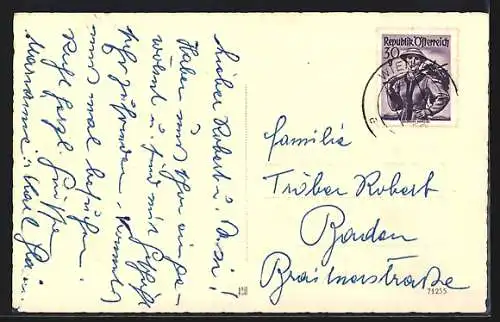 Lieber Robert u. Rosi!
Haben uns schon einge-
wöhnt u. sind mit
sehr zufrieden. Kommt
uns mal besuchen.
Recht herzl. Grüße
Marianne u. Karl
Republik Österreich
30
WIEN
Familie
Tröber Robert
Baden
Straße
71255